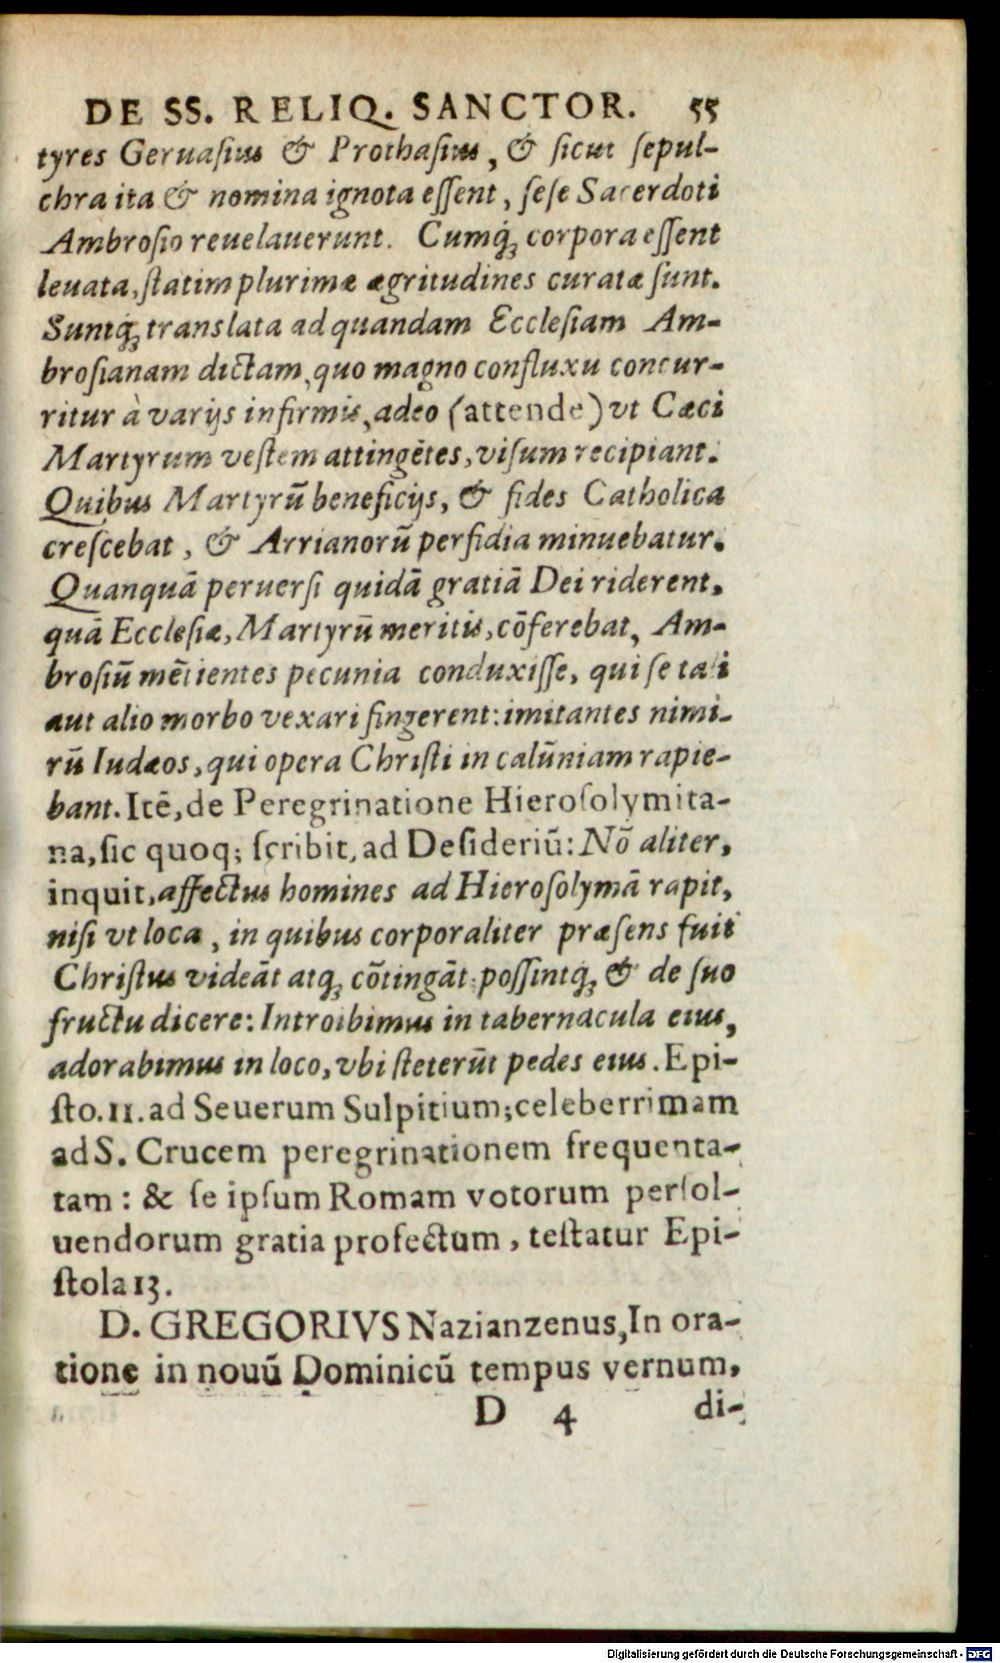 DE SS. RELIQ. SANCTOR. 55
tyres Geruaſius & Prothaſius, & ſicut ſepul-
chra ita & nomina ignota eſſent, ſeſe Sacerdoti
Ambroſio reuelauerunt. Cumq́ꝫ corpora eſſent
leuata, ſtatim plurimæ ægritudines curatæ ſunt.
Suntq́ꝫ translata ad quandam Eccleſiam Am-
broſianam dictam, quo magno confluxu concur-
ritur à varijs infirmis, adeo (attende) vt Cæci
Martyrum veſtem attingētes, viſum recipiant.
Quibus Martyrū beneficijs, & fides Catholica
creſcebat, & Arrianorū perfidia minuebatur.
Quanquā peruerſi quidā gratiā Dei riderent,
quā Eccleſiæ, Martyrū meritis, cōferebat, Am-
broſiū mētientes pecunia conduxiſſe, qui ſe tali
aut alio morbo vexari fingerent: imitantes nimi-
rū Iudæos, qui opera Chriſti in calūniam rapie-
bant. Itē, de Peregrinatione Hieroſolymita-
na, ſic quoq; ſcribit, ad Deſideriū: Nō aliter,
inquit, affectus homines ad Hieroſolymā rapit,
niſi vt loca, in quibus corporaliter præſens fuit
Chriſtus videāt atqꝫ cōtingāt: poſſintq́ꝫ & de ſuo
fructu dicere: Introibimus in tabernacula eius,
adorabimus in loco, vbi ſteterūt pedes eius. Epi-
ſto. 11. ad Seuerum Sulpitium; celeberrimam
ad S. Crucem peregrinationem frequenta-
tam: & ſe ipſum Romam votorum perſol-
uendorum gratia profectum, teſtatur Epi-
ſtola 13.
D. GREGORIVS Nazianzenus, In ora-
tione in nouū Dominicū tempus vernum,
D 4 di-
Digitalisierung gefördert durch die Deutsche Forschungsgemeinschaft - DFG